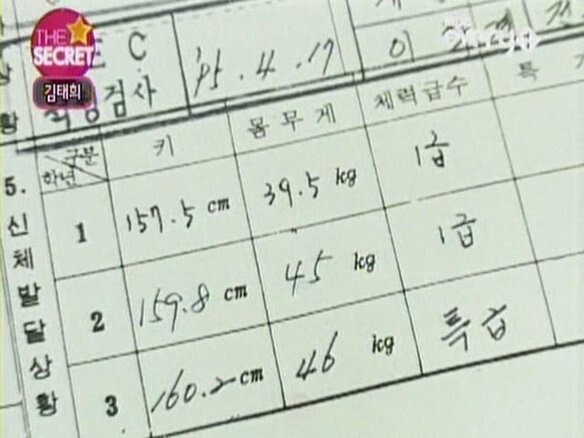 THE
SECRET
김태희
C
'95.4.17
검사
구분
학년
키
몸무게
체력급수
특
5. 신체발달상황
1
157.5 cm
39.5 kg
1급
2
159.8 cm
45 kg
1급
3
160.2 cm
46 kg
특급